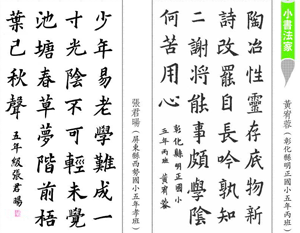 小書法家
黃宥蓉(彰化縣明正國小五年丙班)
陶冶性靈存底物新
詩改罷自長吟孰知
二謝將能事頗學陰
何苦用心
彰化縣明正國小
五年丙班 黃宥蓉
張君暘(屏東縣西勢國小五年孝班)
少年易老學難成一
寸光陰不可輕未覺
池塘春草夢階前梧
葉已秋聲 五年級張君暘